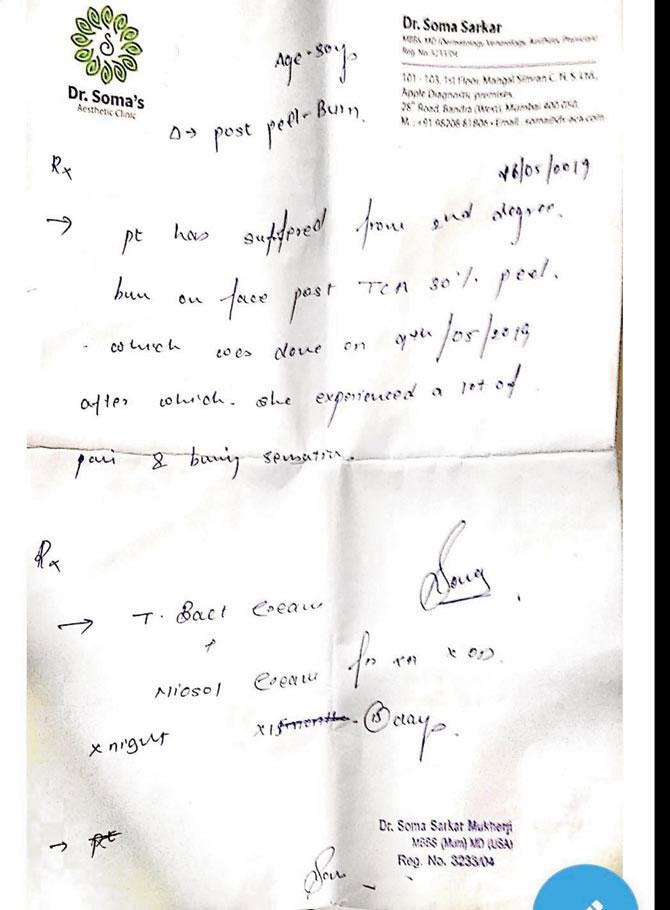 Dr. Soma's
Aesthetic Clinic
Dr. Soma Sarkar
Reg. No. 3233/04
101 - 103, 1st Floor, Mangal Simran C. H. S. Ltd.,
Apple Diagnostic premises,
28th Road, Bandra (West), Mumbai 400 050.
Age - 30y
Δ→ post peel - Burn.
Rx
/05/2019
→ pt has suffered from 2nd degree.
burn on face post TCA 30% peel.
- which was done on 9th/05/2019
after which she experienced a lot of
pain & burnig sensation.
Rx
→ T. Bact Cream
+
Cream
x night x 15 days.
→
Dr. Soma Sarkar Mukherji
MBBS (Mum) MD (USA)
Reg. No. 3233/04